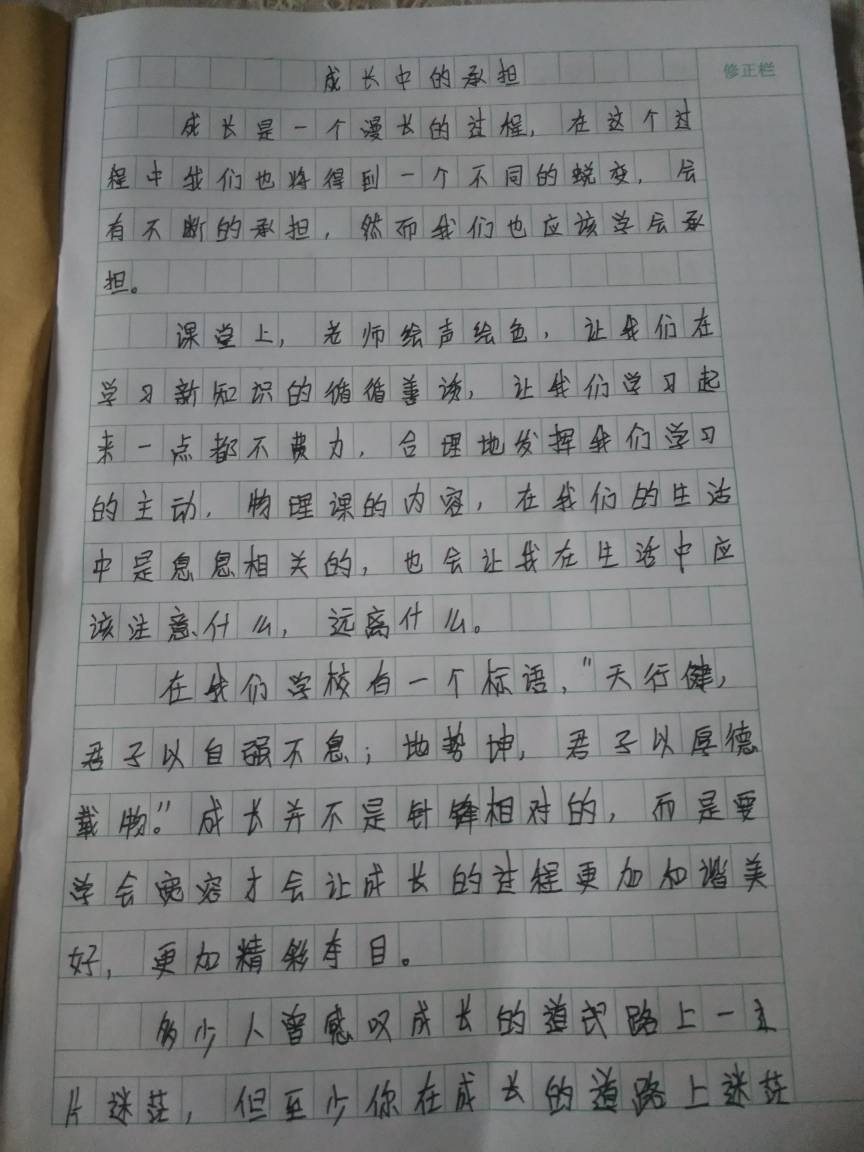 成长中的承担
修正栏
成长是一个漫长的过程，在这个过
程中我们也将得到一个不同的蜕变，会
有不断的承担，然而我们也应该学会承
担。
课堂上，老师绘声绘色，让我们在
学习新知识的循循善诱，让我们学习起
来一点都不费力，合理地发挥我们学习
的主动，物理课的内容，在我们的生活
中是息息相关的，也会让我在生活中应
该注意什么，远离什么。
在我们学校有一个标语，“天行健，
君子以自强不息；地势坤，君子以厚德
载物。”成长并不是针锋相对的，而是要
学会宽容才会让成长的过程更加和谐美
好，更加精彩夺目。
多少人曾感叹成长的道路上一
片迷茫，但至少你在成长的道路上迷茫